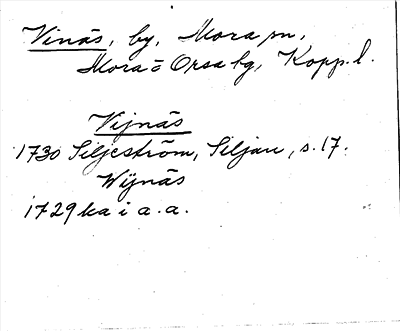 Vinäs, by, Mora sn,
Mora o Orsa bg, Kopp. l.
Vijnäs
1730 Siljeström, Siljan, s. 17.
Wijnäs
1729 ka i a. a.